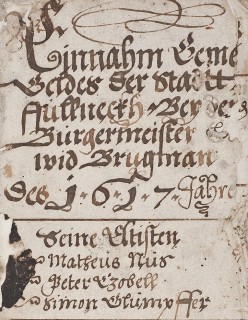 Einnahm Geme
Geldes der Stadtt
Fulkneckh Bey der
Burgermeister
wid Brugman
des 1·6·1·7· Jahre
Seine Eltisten
Matheus Nus
Peter Czobell
Simon Glumpffer